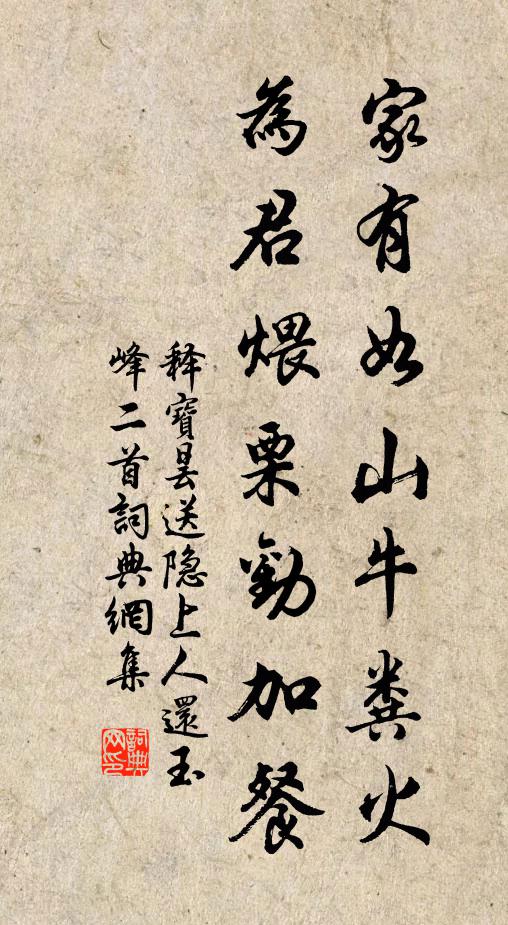 家有如山牛粪火
為君煨栗勸加餐
释寶曇送隐上人還玉
峰二首詞典網集
詞典
网印